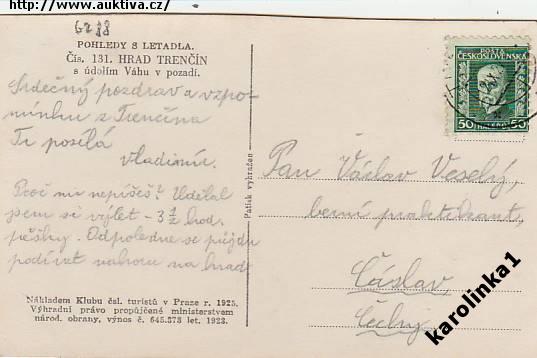 http://www.auktiva.cz/
6288
POHLEDY S LETADLA.
Čís. 131. HRAD TRENČÍN
s údolím Váhu v pozadí.
Srdečný pozdrav a vzpo-
mínku z Trenčína
Ti posílá
Vladimír.
Proč mi nepíšeš? Udělal
jsem si výlet - 3 ½ hod.
pěšky. Odpoledne se půjdu
podívat nahoru na hrad.
Nákladem Klubu čsl. turistů v Praze r. 1925.
Výhradní právo propůjčené ministerstvem
národ. obrany, výnos č. 645.378 let. 1923.
Patisk vyhrazen
POŠTA
ČESKOSLOVENSKÁ
50 HALÉŘŮ 50
Pan Václav Veselý,
berní praktikant,
Čáslav
Čechy
karolinka1